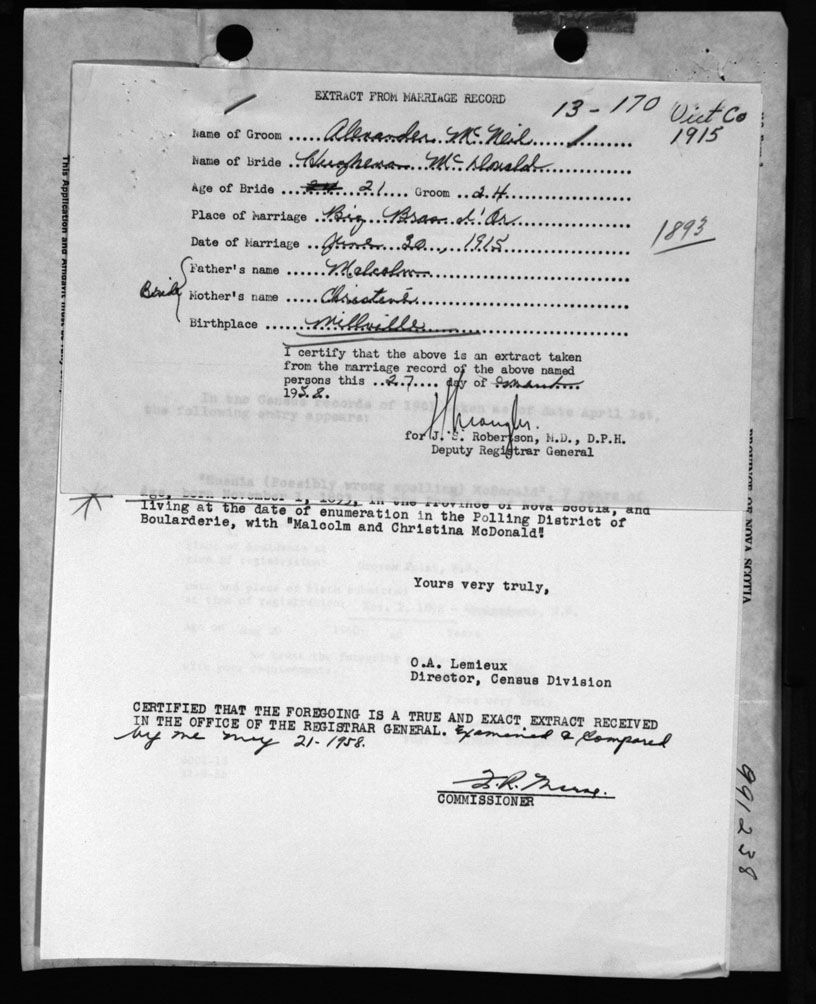 EXTRACT FROM MARRIAGE RECORD
13-170 Vict Co
1915
Name of Groom ..... Alexander McNeil ..........
Name of Bride .. Hughena McDonald ..........
Age of Bride ... 21 .... Groom .. 24 ..........
Place of Marriage .. Big Bras d'Or ..........
Date of Marriage .. June 30, 1915 ..........
1893
Bride
Father's name ...... Malcolm ..........
Mother's name ...... Christene ..........
Birthplace ....... Millville ..........
I certify that the above is an extract taken
from the marriage record of the above named
persons this ..27.... day of
1958.
for J. S. Robertson, M.D., D.P.H.
Deputy Registrar General
In the Census records of 1901 taken as of date April 1st,
the following entry appears:
"Huenia (Possibly wrong spelling) McDonald", 7 years of
age, born November 1, 1893, in the Province of Nova Scotia, and
living at the date of enumeration in the Polling District of
Boularderie, with "Malcolm and Christina McDonald".
Yours very truly,
O.A. Lemieux
Director, Census Division
CERTIFIED THAT THE FOREGOING IS A TRUE AND EXACT EXTRACT RECEIVED
IN THE OFFICE OF THE REGISTRAR GENERAL. Examined & Compared
by me May 21-1958.
COMMISSIONER
991238
PROVINCE OF NOVA SCOTIA
This Application and Affidavit must be